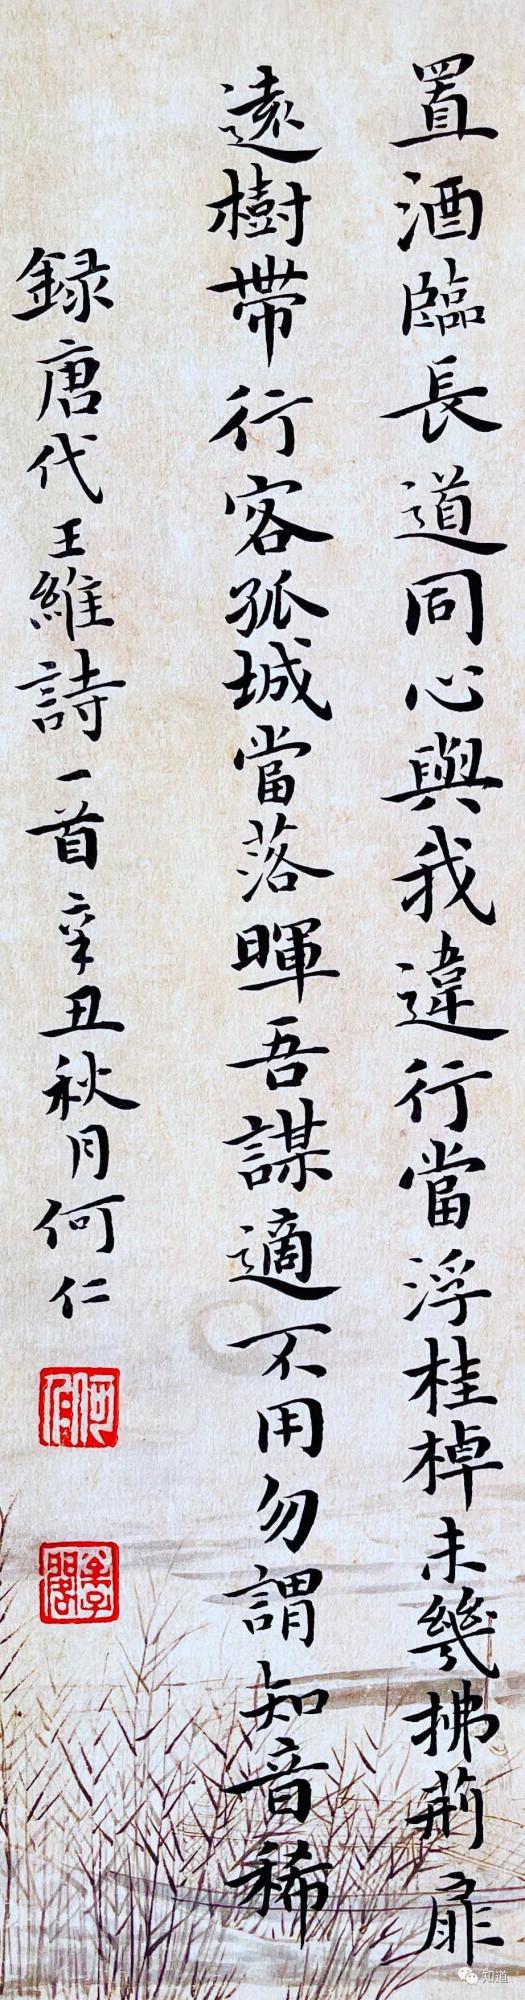 置酒臨長道同心與我違行當浮桂棹未幾拂荊扉
遠樹帶行客孤城當落暉吾謀適不用勿謂知音稀
録唐代王維詩一首辛丑秋月何仁
知道